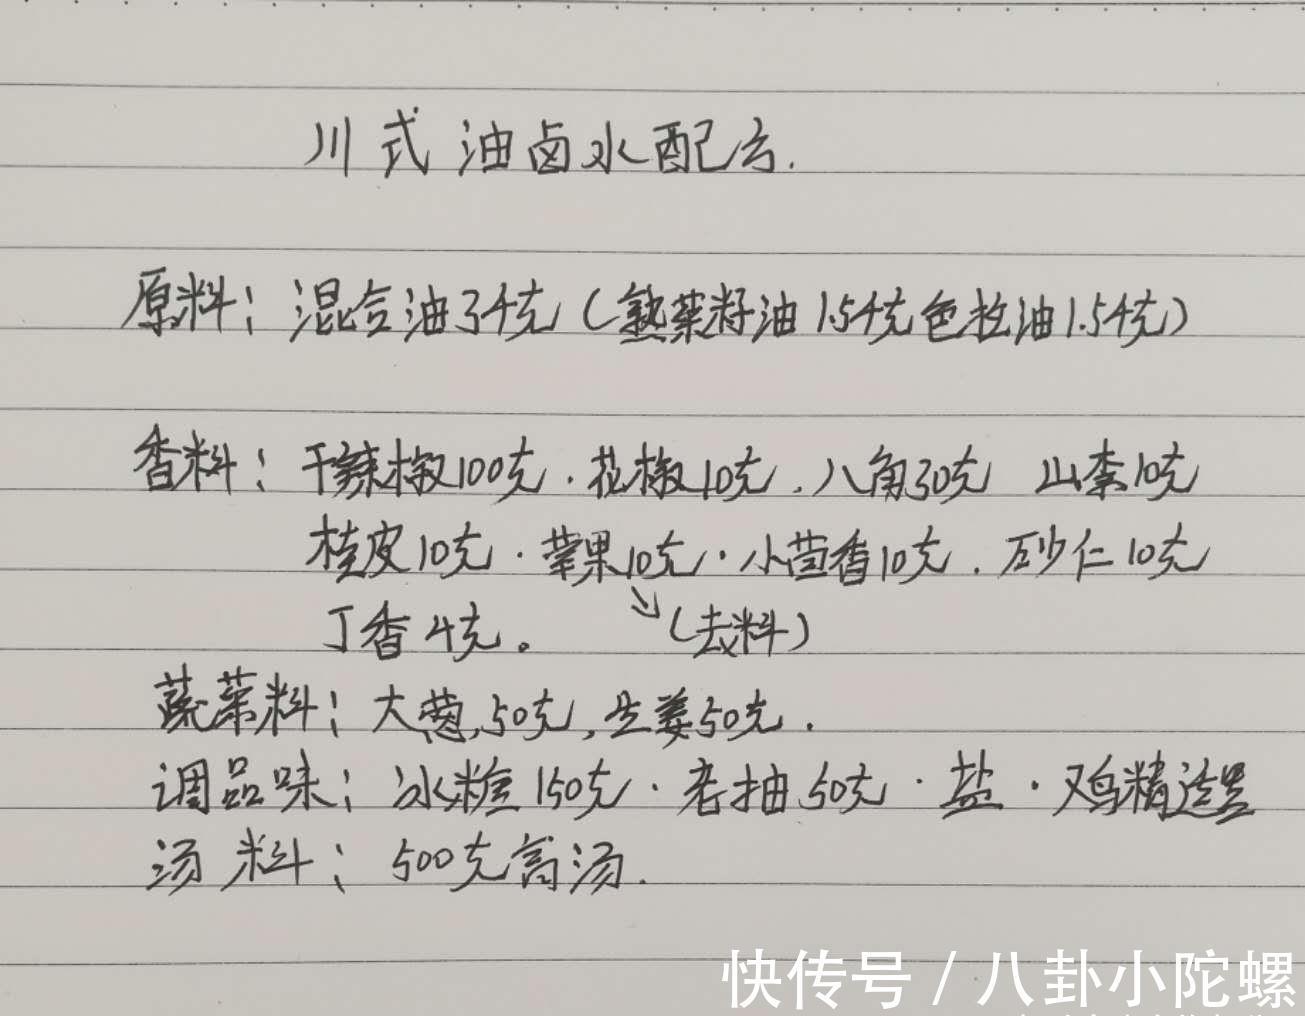 川式油卤水配方.
原料：混合油3千克（熟菜籽油1.5千克色拉油1.5千克）
香料：干辣椒100克．花椒10克．八角30克 山柰10克
桂皮10克．草果10克．小茴香10克．砂仁10克
丁香4克。（去料）
蔬菜料：大葱50克，生姜50克．
调品味：冰糖150克．老抽50克．盐．鸡精适量
汤料：500克高汤．
快传号／八卦小陀螺